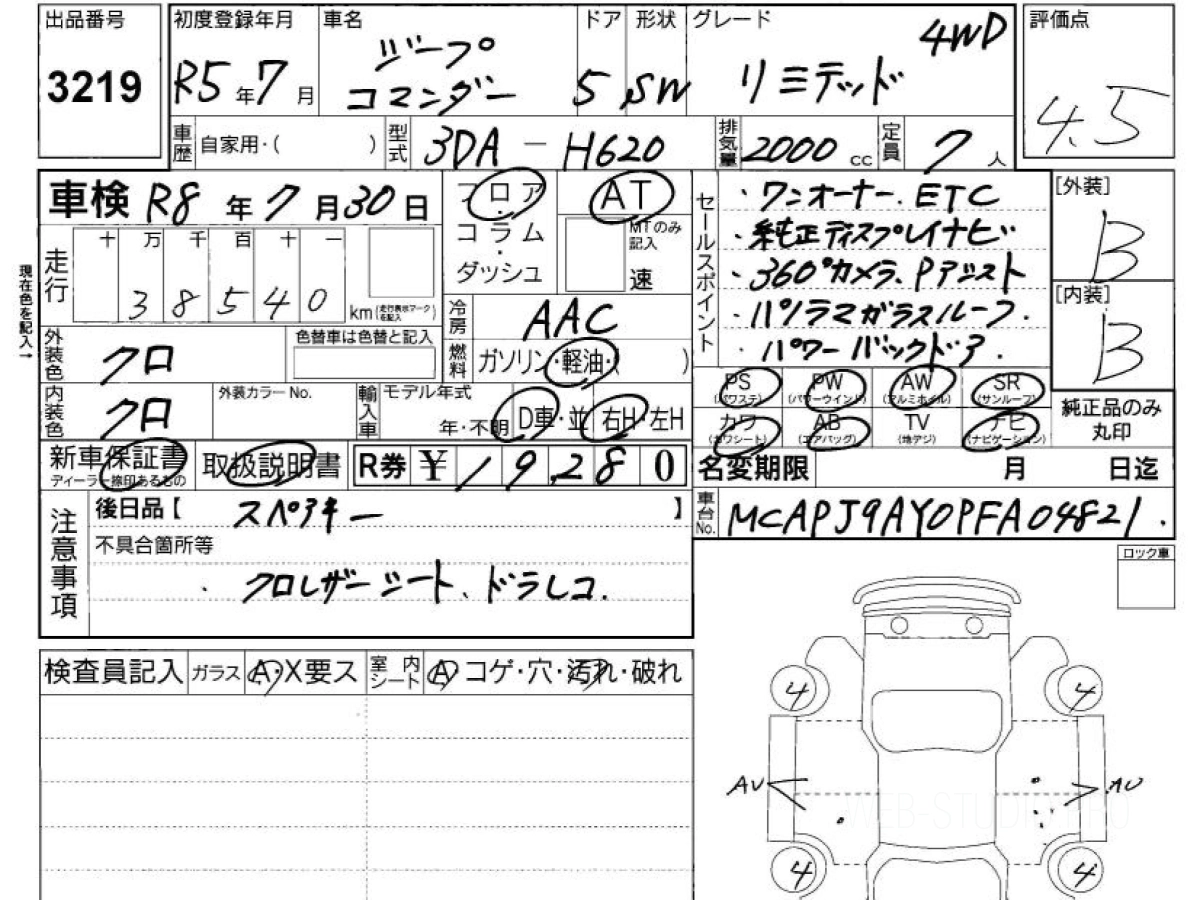 出品番号 初度登録年月 車名 ドア 形状 グレード 評価点
3219 R5年7月 ジープ コマンダー 5 SW リミテッド 4WD 4.5
車歴 自家用・( ) 型式 3DA-H620 排気量 2000cc 定員 7人
車検 R8年7月30日
フロア・コラム・ダッシュ
AT
MTのみ記入
速
セールスポイント
・ワンオーナー. ETC
・純正ディスプレイナビ
・360°カメラ、Pアシスト
・パノラマガラスルーフ.
・パワーバックドア.
[外装]
B
[内装]
B
現在色を記入→
走行 十 万 千 百 十 一
38540 km (走行表示マークを記入)
冷房 AAC
燃料 ガソリン・軽油・( )
外装色 クロ 色替車は色替と記入
内装色 クロ 外装カラーNo. 輸入車 モデル年式 年・不明 D車・並 右H・左H
PS (パワステ) PW (パワーウインド) AW (アルミホイル) SR (サンルーフ)
カワ (カワシート) AB (エアバッグ) TV (地デジ) ナビ (ナビゲーション)
純正品のみ丸印
新車保証書 取扱説明書 R券 ¥19,280
ディーラー捺印あるもの
名変期限 月 日迄
車台No. MCAPJ9AY0PFA04821.
注意事項
後日品【 スペアキー 】
不具合箇所等
・クロレザーシート、ドラレコ.
ロック車
検査員記入 ガラス A・X要ス 室内シート A・コゲ・穴・汚れ・破れ
4 4
AU AU
WEB-STUDIO.PRO
4 4